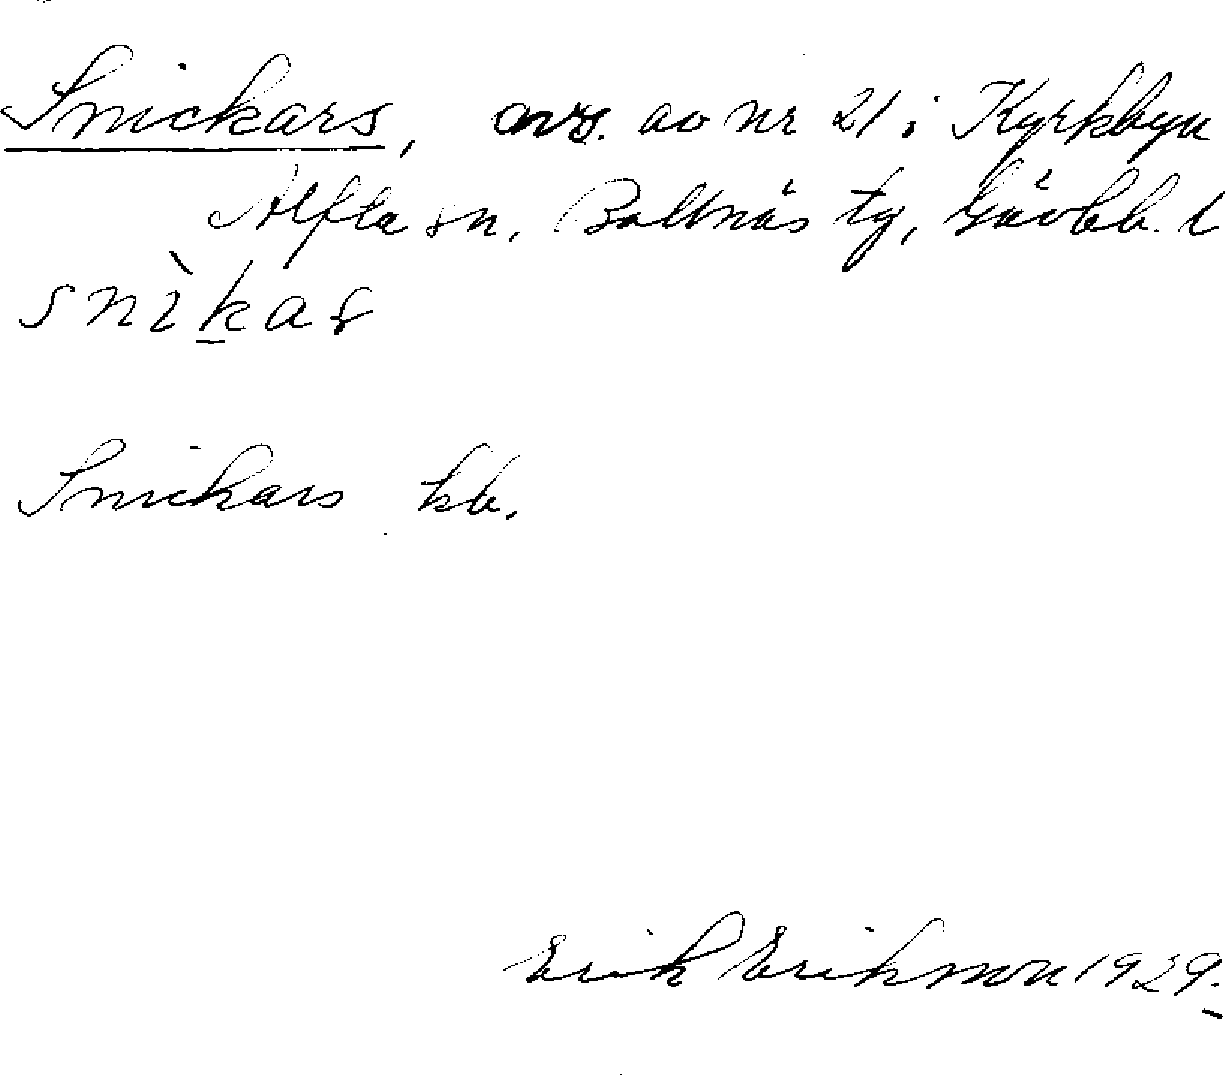 Snickars, avs. av nr 21 i Kyrkbyn
Alfta sn, Bollnäs tg, Gävleb. l
snìkas
Snickars kb.
Erik Erikson 1929.